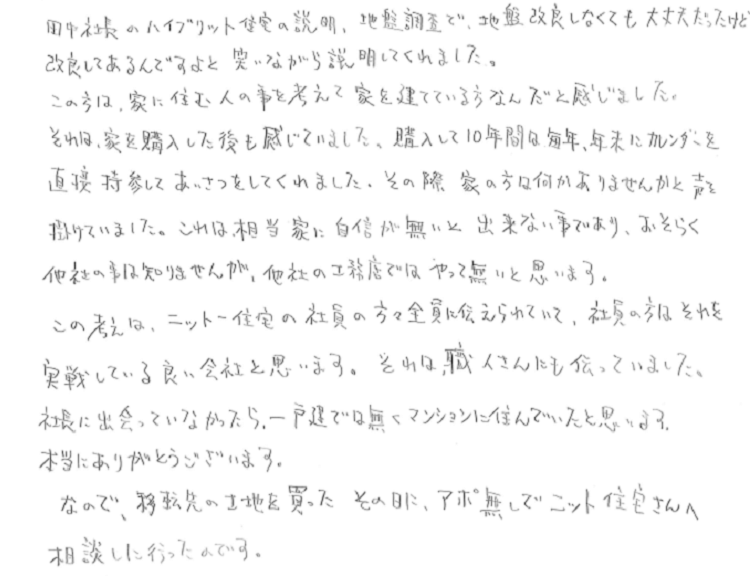 田中社長のハイブリット住宅の説明、地盤調査で、地盤改良しなくても大丈夫だったけど
改良してあるんですよと笑いながら説明してくれました。
この方は、家に住む人の事を考えて家を建てている方なんだと感じました。
それは、家を購入した後も感じていました。購入して10年間は毎年、年末にカレンダーを
直接持参してあいさつをしてくれました。その際家の方は何かありませんかと声を
掛けていました。これは相当家に自信が無いと出来ない事であり、おそらく
他社の事は知りませんが、他社の工務店ではやって無いと思います。
この考えは、ニットー住宅の社員の方々全員に伝えられていて、社員の方はそれを
実戦している良い会社と思います。それは、職人さんにも伝っていました。
社長に出会っていなかったら、一戸建では無くマンションに住んでいたと思います。
本当にありがとうございます。
なので、移転先の土地を買ったその日に、アポ無しでニット住宅さんへ
相談しに行ったのです。